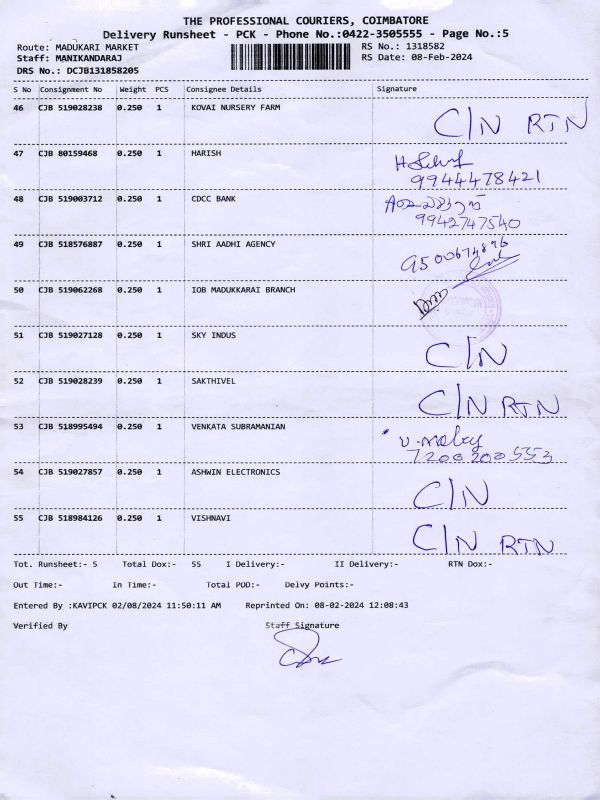 THE PROFESSIONAL COURIERS, COIMBATORE
Delivery Runsheet - PCK - Phone No.:0422-3505555 - Page No.:5
Route: MADUKARI MARKET RS No.: 1318582
Staff: MANIKANDARAJ RS Date: 08-Feb-2024
DRS No.: DCJB131858205
S No Consignment No Weight PCS Consignee Details Signature
46 CJB 519028238 0.250 1 KOVAI NURSERY FARM C/N RTN
47 CJB 80159468 0.250 1 HARISH
9944478421
48 CJB 519003712 0.250 1 CDCC BANK
9942747540
49 CJB 518576887 0.250 1 SHRI AADHI AGENCY
50 CJB 519062268 0.250 1 IOB MADUKKARAI BRANCH
51 CJB 519027128 0.250 1 SKY INDUS C/N
52 CJB 519028239 0.250 1 SAKTHIVEL C/N RTN
53 CJB 518995494 0.250 1 VENKATA SUBRAMANIAN
7200200553
54 CJB 519027857 0.250 1 ASHWIN ELECTRONICS C/N
55 CJB 518984126 0.250 1 VISHNAVI C/N RTN
Tot. Runsheet:- 5 Total Dox:- 55 I Delivery:- II Delivery:- RTN Dox:-
Out Time:- In Time:- Total POD:- Delvy Points:-
Entered By :KAVIPCK 02/08/2024 11:50:11 AM Reprinted On: 08-02-2024 12:08:43
Verified By Staff Signature